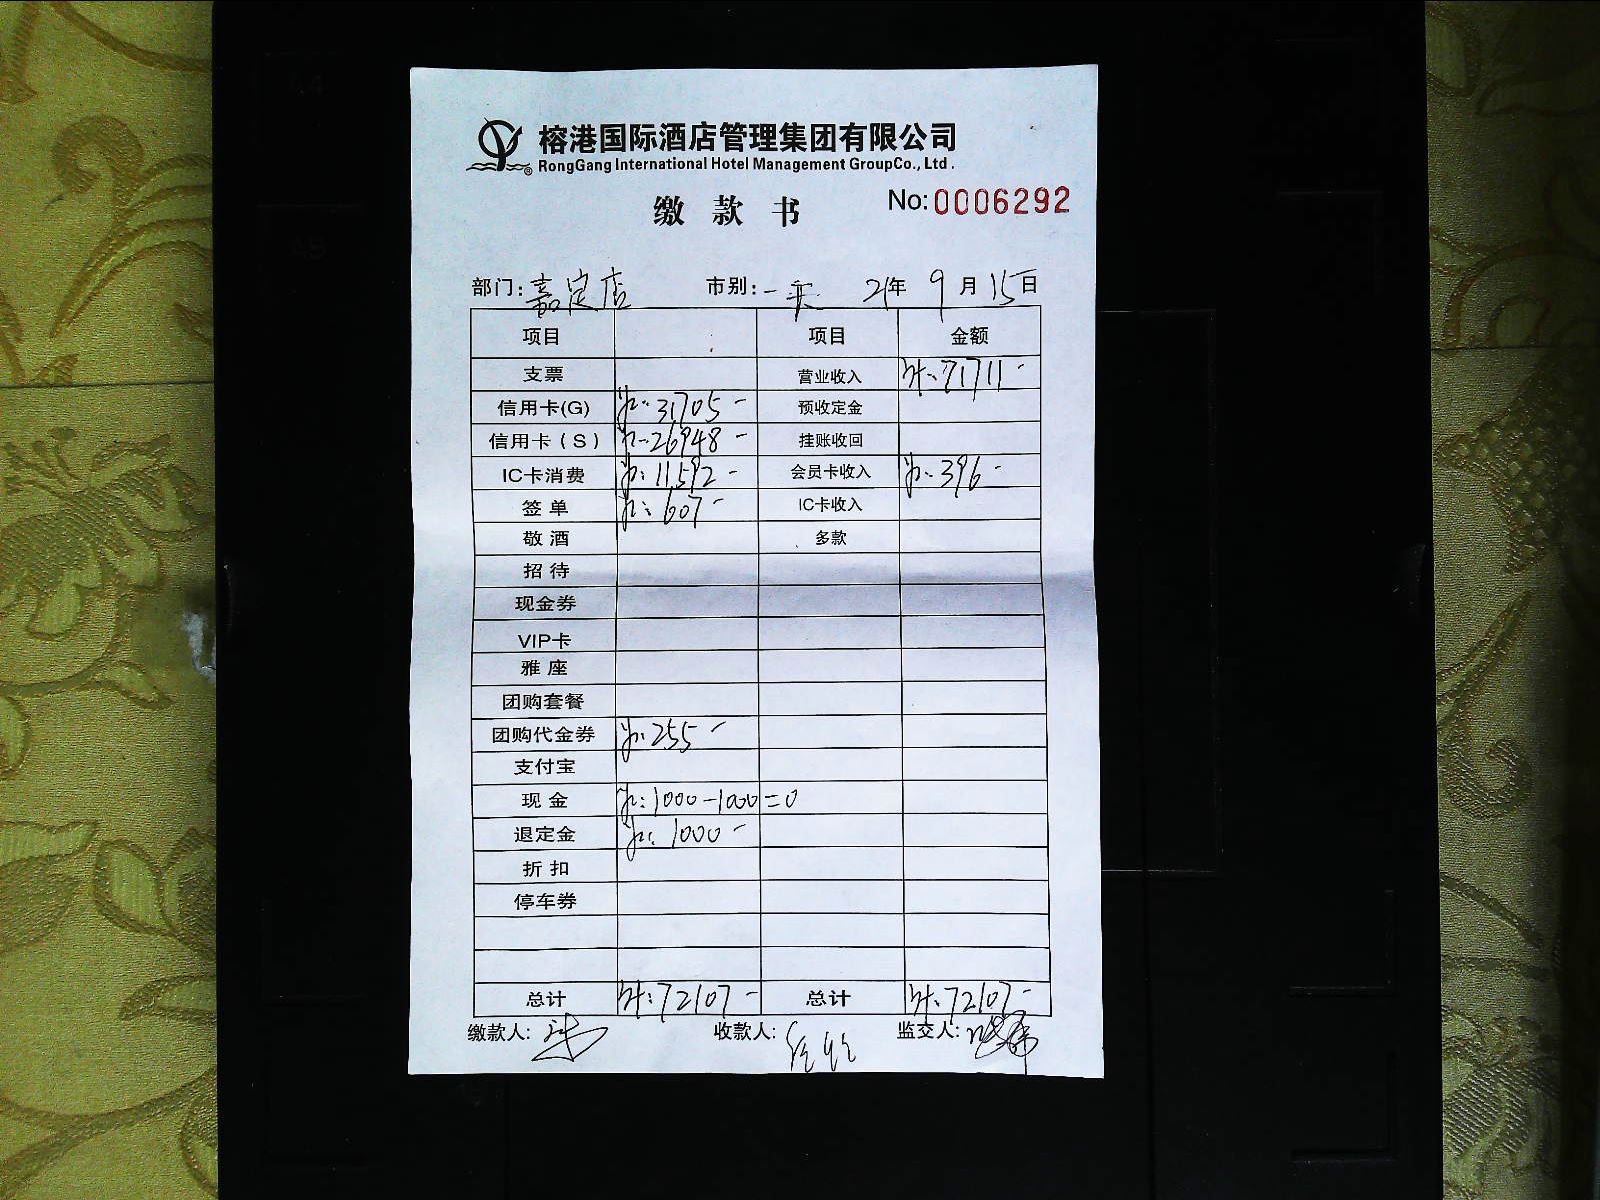 榕港国际酒店管理集团有限公司
RongGang International Hotel Management GroupCo., Ltd.
缴款书 No:0006292
部门: 嘉定店 市别: 一天 21年 9月 15日
项目 项目 金额
支票 营业收入 计: 71711-
信用卡(G) 计: 31705- 预收定金
信用卡(S) 计: 26948- 挂账收回
IC卡消费 计: 11592- 会员卡收入 计: 396-
签单 计: 607- IC卡收入
敬酒 多款
招待
现金券
VIP卡
雅座
团购套餐
团购代金券 计: 255-
支付宝
现金 计: 1000-1000=0
退定金 计: 1000-
折扣
停车券
总计 计: 72107- 总计 计: 72107-
缴款人: 收款人: 监交人: